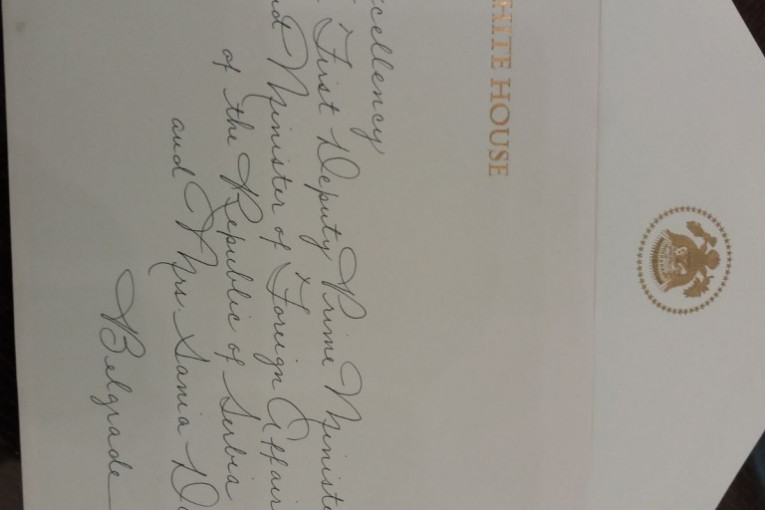 HITE HOUSE
cellency
First Deputy Prime Ministe
nd Minister of Foreign Affair
of the Republic of Serbia
and Mrs. Sania Da
Belgrade